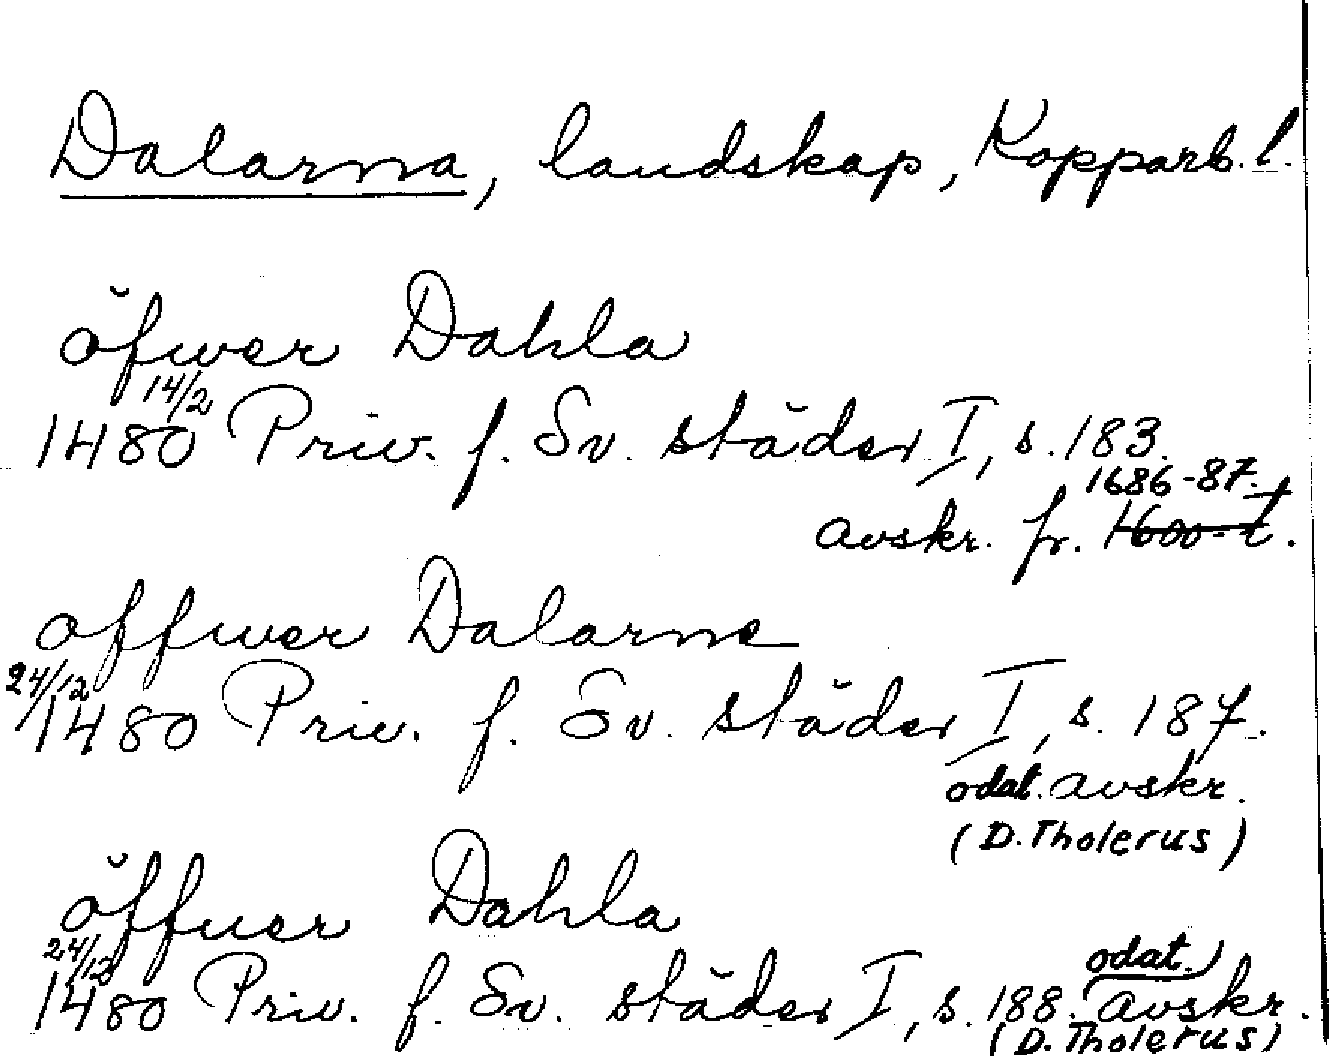 Dalarna, landskap, Kopparb. l.
öfwer Dahla
14/2
1480 Priv. f. Sv. städer I, s. 183.
1686-87.
avskr. fr. 1600-t.
offwer Dalarne
24/12
1480 Priv. f. Sv. städer I, s. 187.
odat. avskr.
(D. Tholerus)
öffuer Dahla
24/12 odat.
1480 Priv. f. Sv. städer I, s. 188. avskr.
(D. Tholerus)